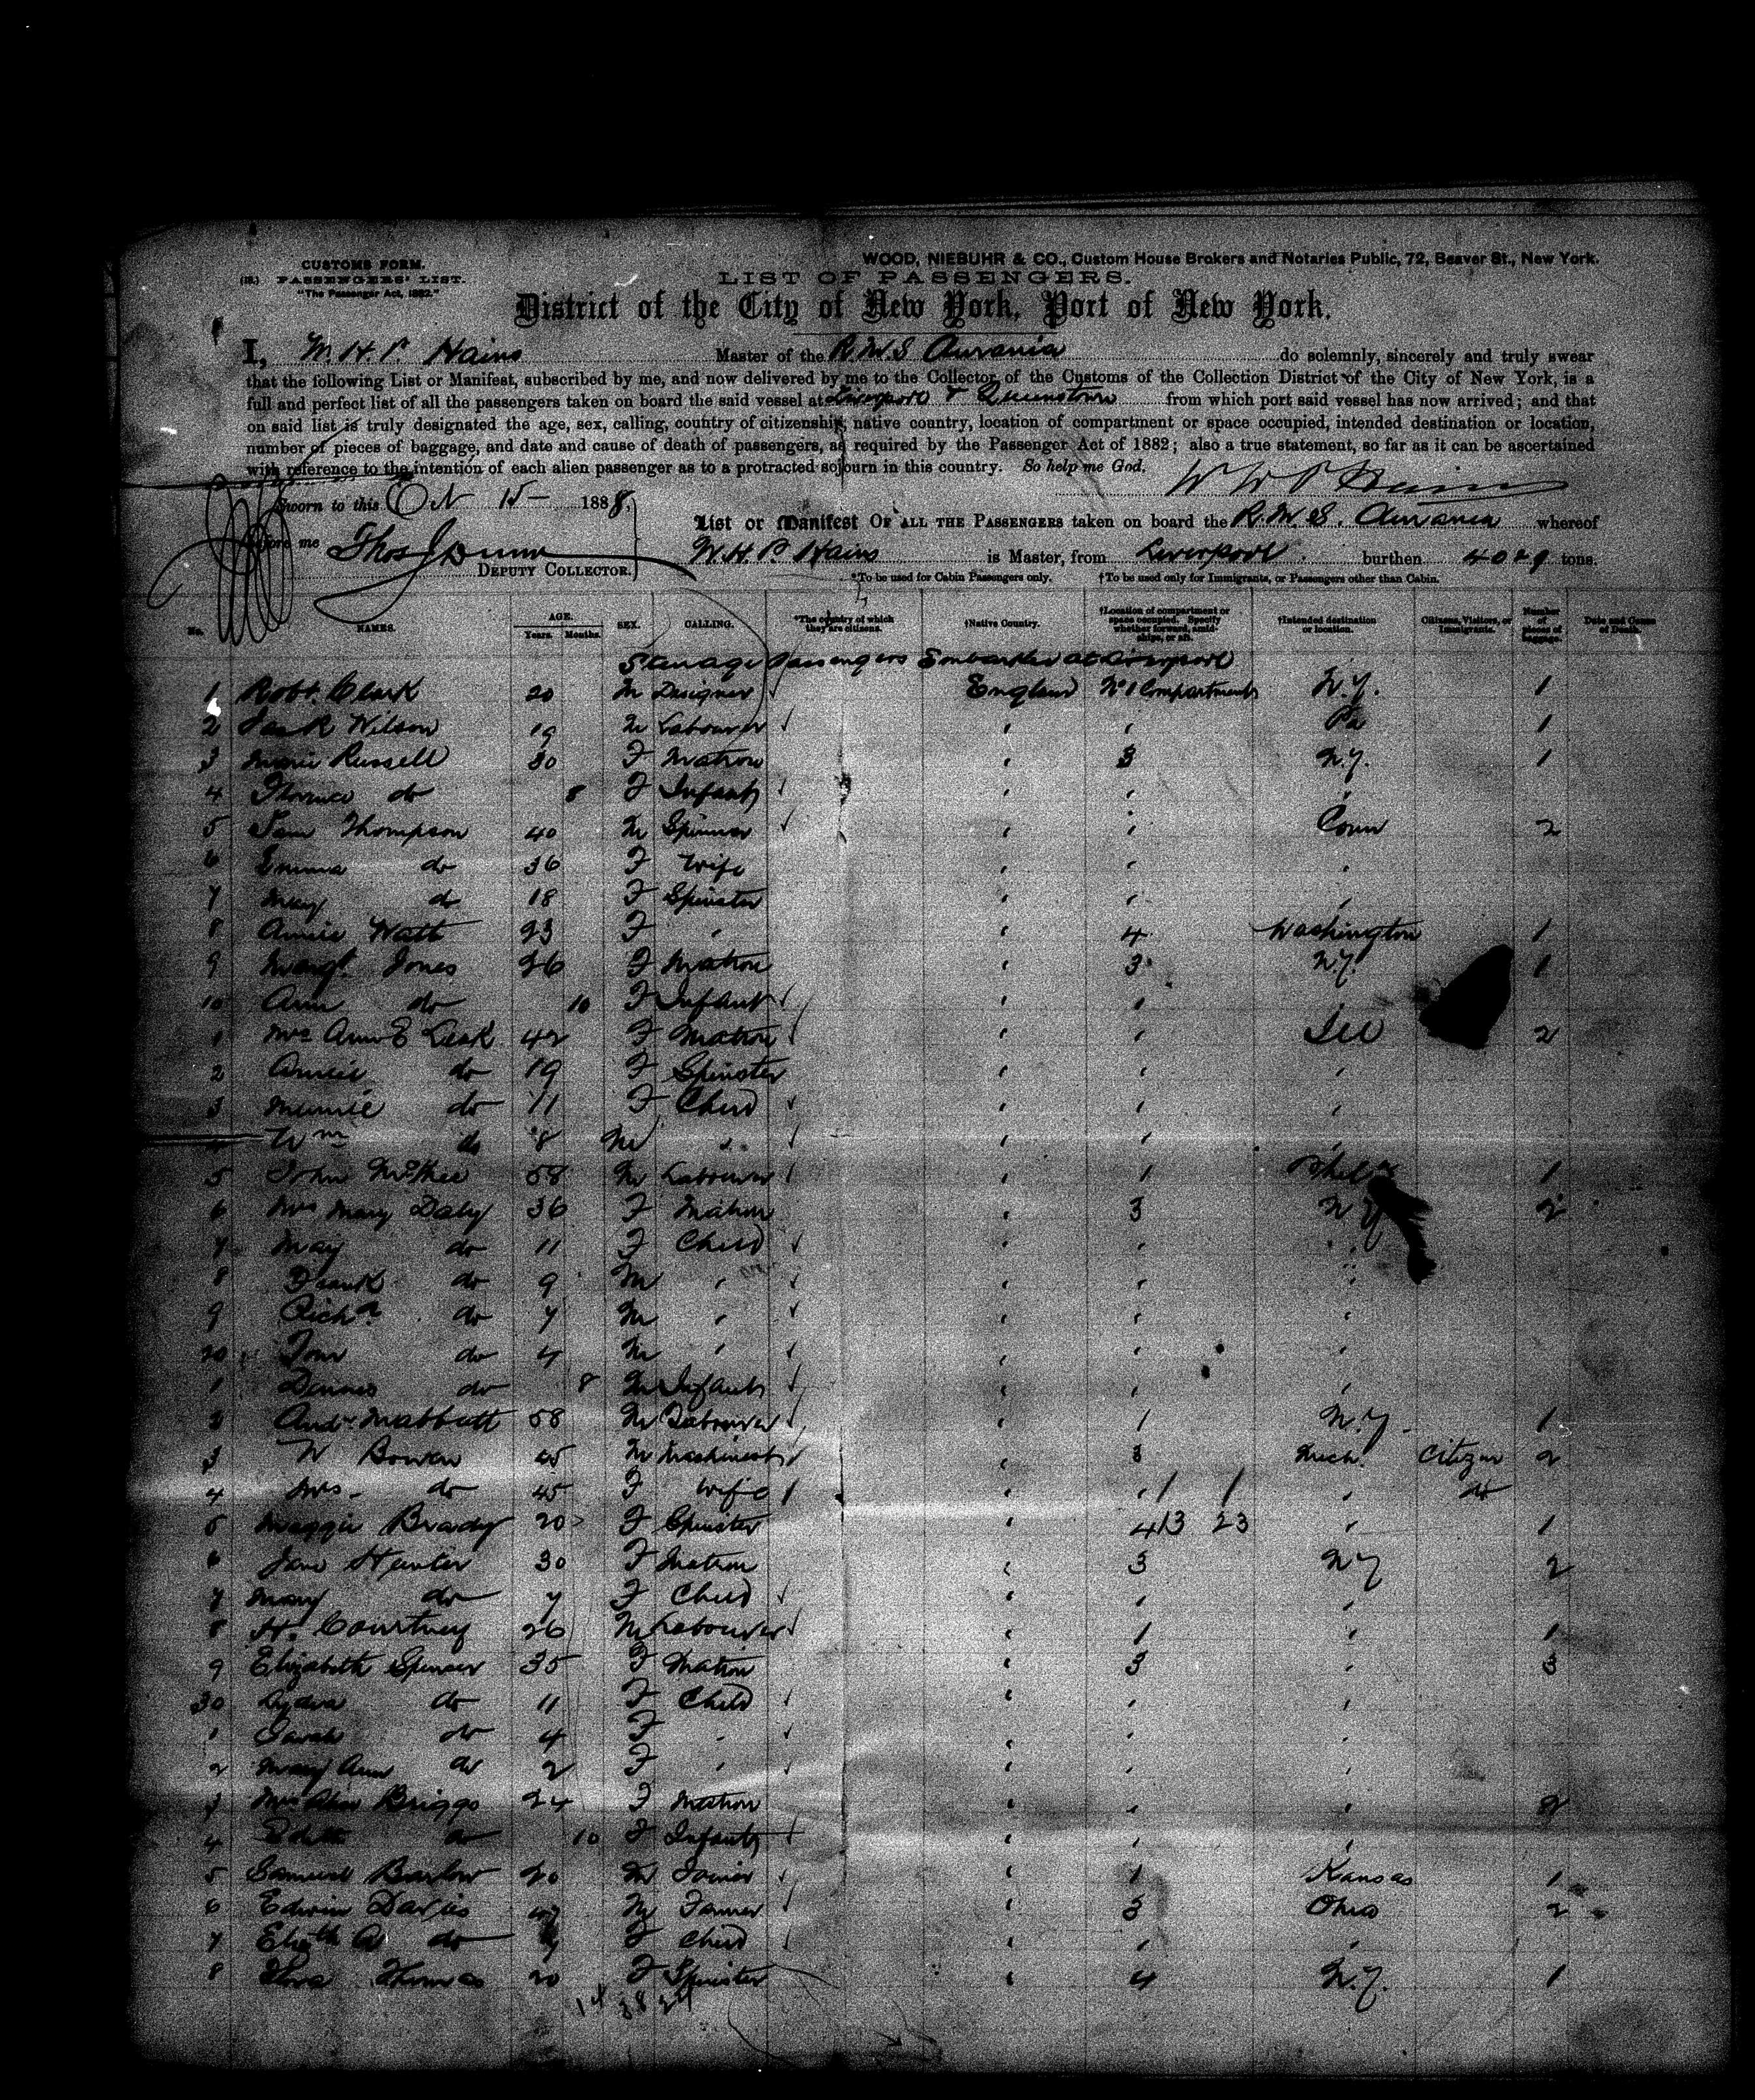 CUSTOMS FORM.
PASSENGERS' LIST.
"The Passenger Act, 1882."
WOOD, NIEBUHR & CO., Custom House Brokers and Notaries Public, 72, Beaver St., New York.
LIST OF PASSENGERS.
District of the City of New York, Port of New York.
I, W. H. P. Hains Master of the R.M.S Aurania do solemnly, sincerely and truly swear
that the following List or Manifest, subscribed by me, and now delivered by me to the Collector of the Customs of the Collection District of the City of New York, is a
full and perfect list of all the passengers taken on board the said vessel at Liverpool & Queenstown from which port said vessel has now arrived; and that
on said list is truly designated the age, sex, calling, country of citizenship, native country, location of compartment or space occupied, intended destination or location,
number of pieces of baggage, and date and cause of death of passengers, as required by the Passenger Act of 1882; also a true statement, so far as it can be ascertained
with reference to the intention of each alien passenger as to a protracted sojourn in this country. So help me God.
W H P Hains
Sworn to this Oct 15 1888.
List or Manifest OF ALL THE PASSENGERS taken on board the R.M.S. Aurania whereof
before me Thos J Dunn
W. H. P. Hains is Master, from Liverpool burthen 4029 tons.
DEPUTY COLLECTOR.
*To be used for Cabin Passengers only. †To be used only for Immigrants, or Passengers other than Cabin.
No. NAMES. AGE. Years. Months. SEX. CALLING. *The country of which they are citizens. †Native Country. †Location of compartment or space occupied. Specify whether forward, amidships, or aft. †Intended destination or location. Citizens, Visitors, or Immigrants. Number of pieces of baggage. Date and Cause of Death.
Steerage Passengers Embarked at Liverpool
1 Robt. Clark 20 M Designer England No 1 Compartment N.Y. 1
2 Jack Wilson 19 M Labourer " " Pa 1
3 Russell 30 F Matron " 3 N.Y. 1
4 do 8 F Infant " " "
5 Sam Thompson 40 M Spinner " " Conn 2
6 Emma do 36 F Wife " " "
7 May do 18 F Spinster " " "
8 Annie Watt 23 F " " 4 Washington 1
9 Margt. Jones 26 F Matron " 3 N.Y. 1
10 Ann do 10 F Infant " "
1 Mrs Ann E Leak 42 F Matron " " 2
2 Annie do 19 F Spinster " " "
3 Minnie do 11 F Child " " "
Wm do 8 M " " "
5 John McPhee 58 M Labourer " 1 1
6 Mrs Mary Daly 36 F Matron " 3 N Y 2
7 May do 11 F Child " " "
8 Frank do 9 M " " " "
9 Richd. do 7 M " " " "
20 Tom do 4 M " " " "
1 Dennis do 8 M Infant " " "
2 Andw. Mabbutt 58 M Labourer " 1 N.Y. 1
3 W Bowen 45 M Machinist " 3 Mich. Citizen 2
4 Mrs. do 45 F Wife " " 1 1 " do
5 Maggie Brady 20 F Spinster " 4 13 23 " 1
6 Jane Hunter 30 F Matron " 3 N Y 2
7 Mary do 7 F Child " " "
8 H. Courtney 26 M Labourer " 1 " 1
9 Elizabeth Spenser 35 F Matron " 3 " 3
30 Lydia do 11 F Child " " "
1 Sarah do 4 F " " " "
2 Mary Ann do 2 F " " " "
3 Mrs Briggs 24 F Matron " " " 2
4 Edith do 10 F Infant " " "
5 Samuel Barlow 20 M Joiner " 1 Kansas 1
6 Edwin Davies M Farmer " 3 Ohio 2
7 Elizth A do F Child " " "
8 Thomas 20 F Spinster " 4 N.Y. 1